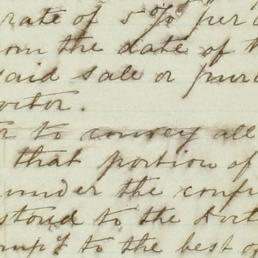 rate of 5 %
om the date of
said sale or pur
to convey all
that portion of
under the conf
to the
to the best o